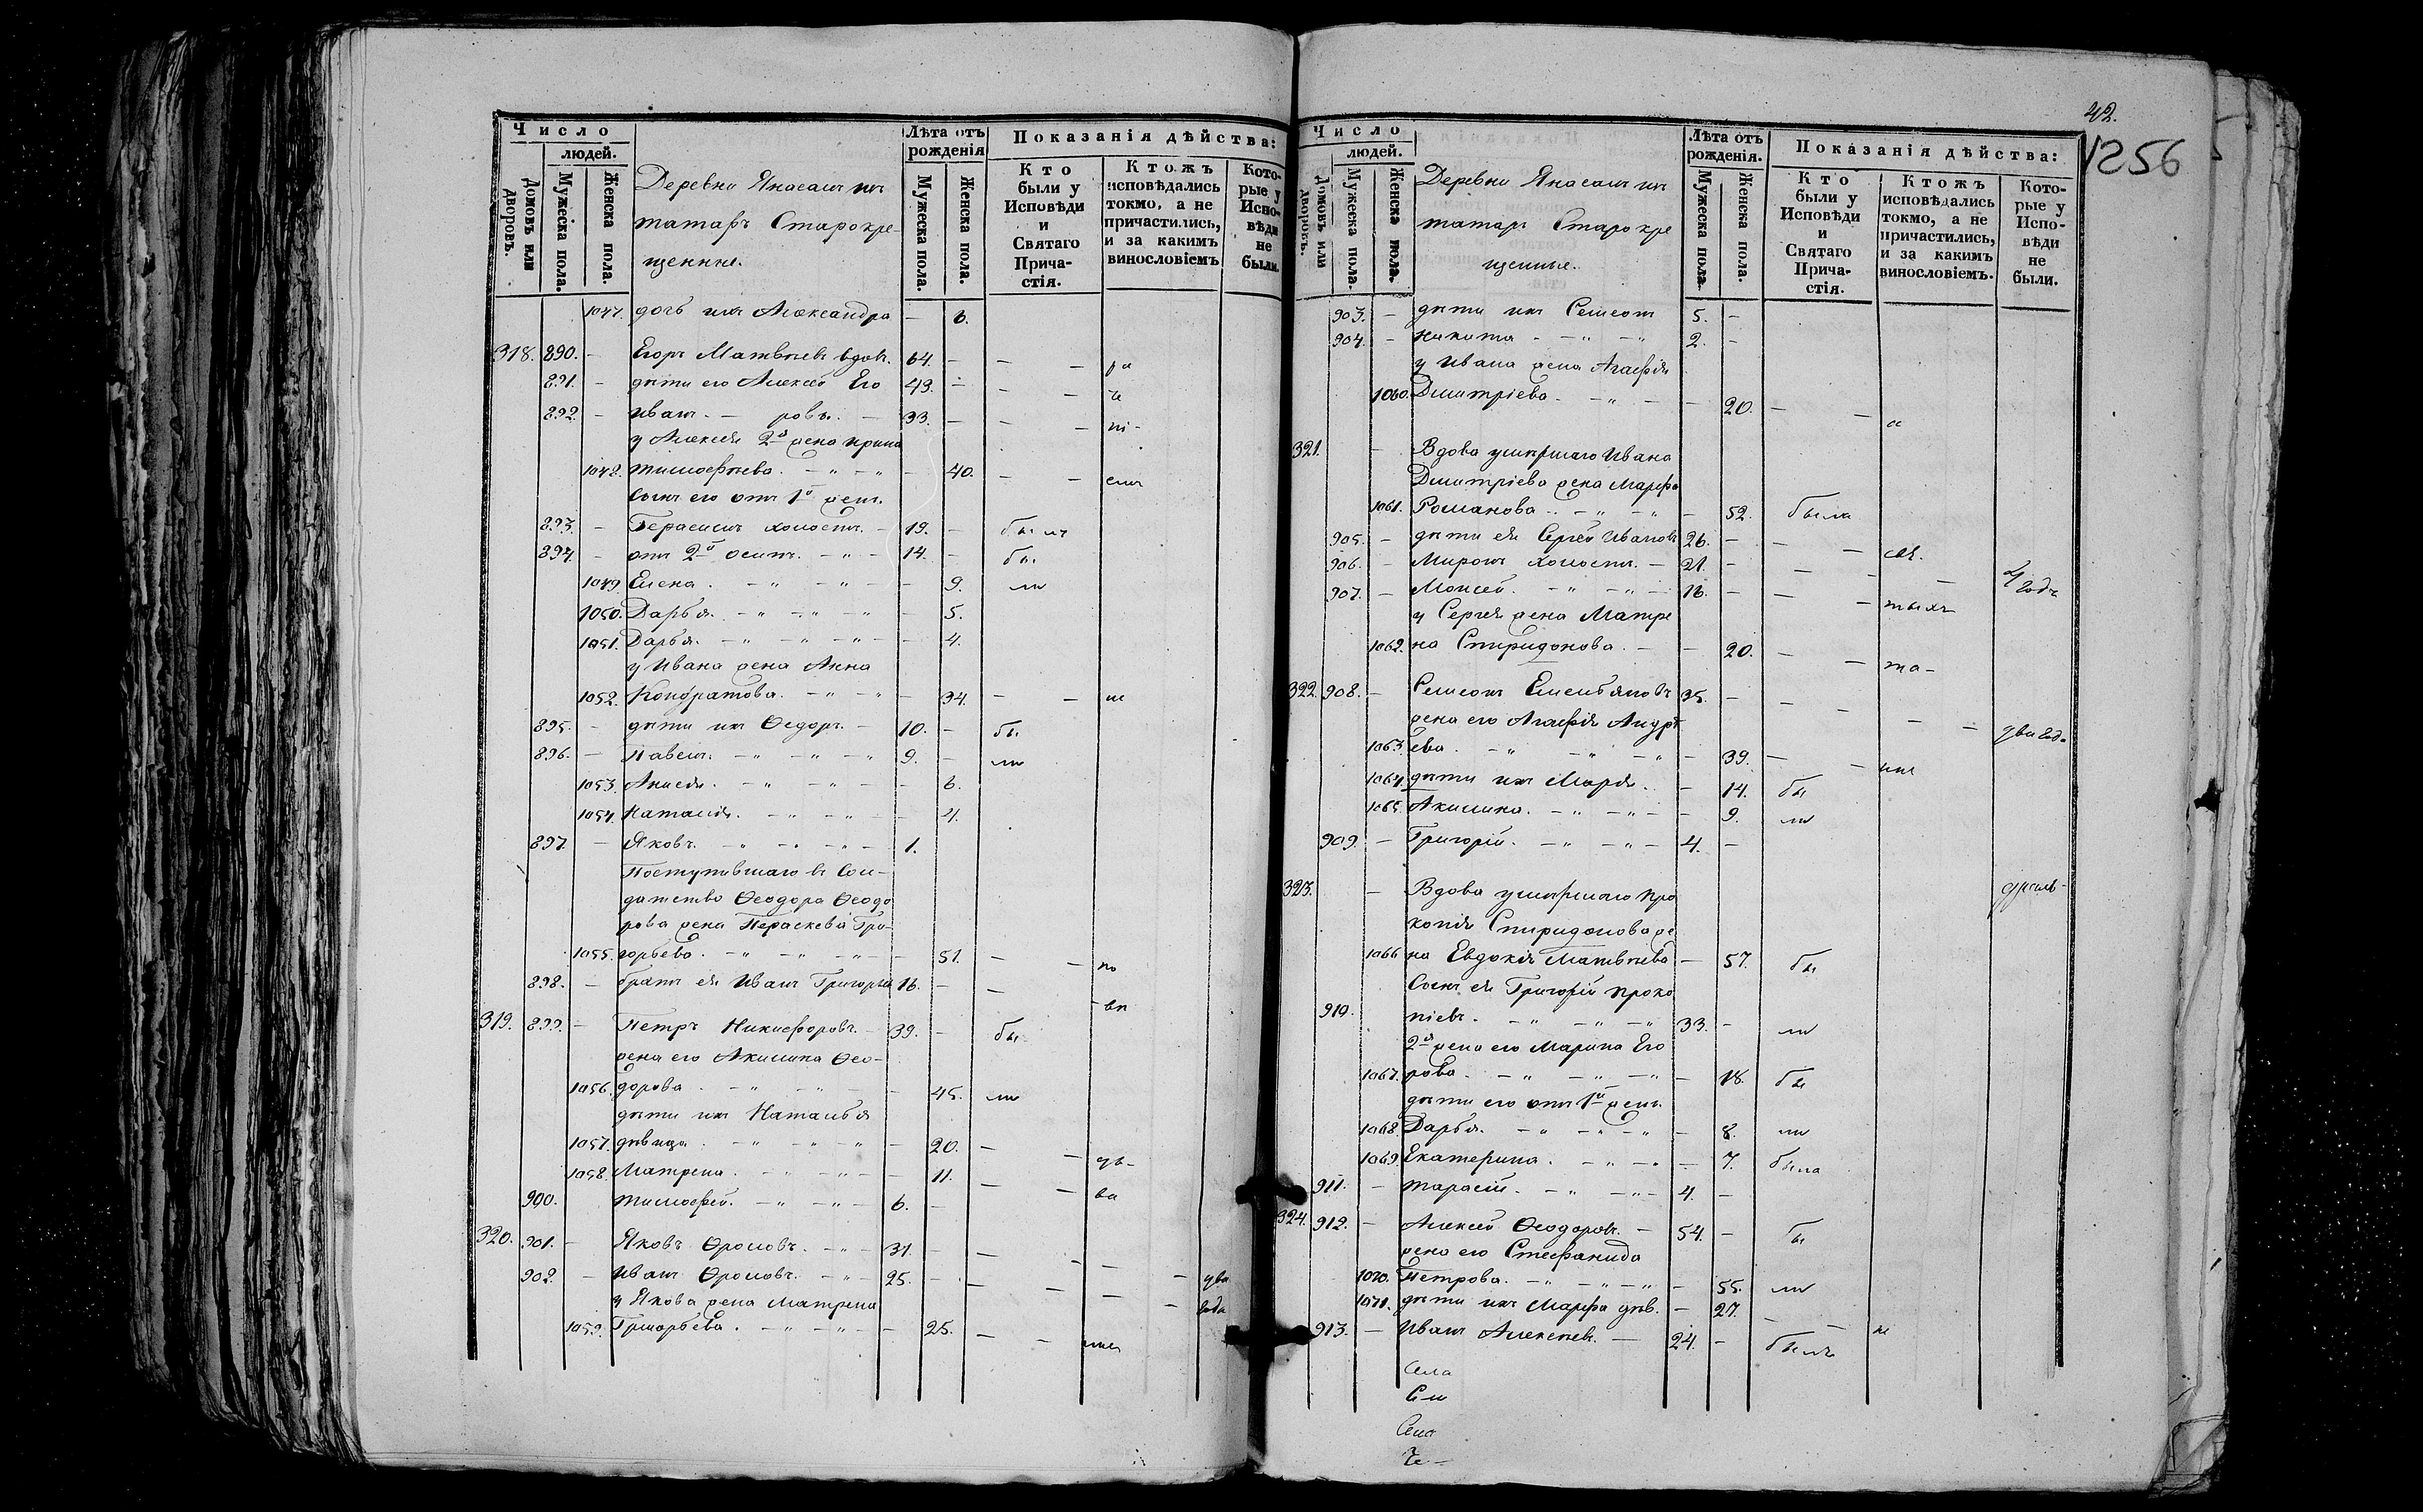 Число
людей.
Домовъ или дворовъ.
Мужеска пола.
Женска пола.
Деревни Янасалъ изъ
татаръ Старокре-
щенные.
Лѣта отъ
рожденія
Мужеска пола.
Женска пола.
Показанія дѣйства:
Кто были у Исповѣди и Святаго Прича-стія.
Ктожъ исповѣдались токмо, а не причастились, и за какимъ винословіемъ
Кото-рые у Испо-вѣди не были.
1047. дочь ихъ Александра — 6.
318. 890. — Егоръ Матвѣевъ вдов. 64. —
891. — дѣти его Алексей Его 43. —
892. — Иванъ — ровы. — 33. —
у Алексея 2я жена Ирина
1048. Тимофѣева. — 40. —
Сынъ его отъ 1й жен.
893. — Герасимъ холостъ. — 19. — былъ
894. — отъ 2й — 14. — бы
1049. Елена. — 9. ли
1050. Дарья. — 5.
1051. Дарья. — 4.
у Ивана жена Анна
1052. Кондратова. — 34. —
895. — дѣти ихъ Ѳедоръ. — 10. — бы
896. — Павелъ. — 9. — ли
1053. Анисія. — 6.
1054. Наталія. — 4.
897. — Яковъ. — 1.
Поступившаго въ Сол-
датство Ѳеодора Ѳеодо
рова жена Параскева Гри-
1055. горьева. — 51. — по
898. — братъ ея Иванъ Григорье 16. —
319. 899. — Петръ Никифоровъ. — 39. — бы
жена его Акилина Ѳео-
1056. дорова. — 45. ли
дѣти ихъ Наталья
1057. дѣвица. — 20. —
1058. Матрена. — 11. —
900. Тимофей. — 6. —
320. 901. — Яковъ Ѳроловъ. — 31. —
902. — Иванъ Ѳроловъ. — 25. — два
у Якова жена Матрена года
1059. Григорьева. — 25. —
42.
1256
Число
людей.
Домовъ или дворовъ.
Мужеска пола.
Женска пола.
Деревни Янасалъ изъ
татаръ Старокре
щенные.
Лѣта отъ
рожденія.
Мужеска пола.
Женска пола.
Показанія дѣйства:
Кто были у Исповѣди и Святаго Прича-стія.
Ктожъ исповѣдались токмо, а не причастились, и за какимъ винословіемъ.
Кото-рые у Испо-вѣди не были.
903. — дѣти ихъ Семеонъ 5. —
904. — Никита — 2. —
у Ивана жена Агафія
1060. Дмитріева. — 20. —
321. — Вдова умершаго Ивана
Дмитріева жена Марфа
1061. Романова. — 52. была
905. — дѣти ея Сергей Ивановъ 26. —
906. — Миронъ холостъ. — 21. — 4 годъ
907. — Моисей. — 16. —
у Сергея жена Матре
1062. на Спиридонова. — 20. —
322. 908. — Семеонъ Емельяновъ 35. —
жена его Агафія Андрѣ два год-
1063. ева. — 39. —
1064. дѣти ихъ Марѳа. — 14. бы
1065. Акилина. — 9. ли
909. — Григорій. — 4. —
323. — Вдова умершаго Про
копія Спиридонова же
1066. на Евдокія Матвѣева — 57. бы
Сынъ ея Григорій Проко
910. піевъ. — 33. — ли
2я жена его Марина Его
1067. рова — 18. бы
дѣти его отъ 1й жен.
1068. Дарья. — 8. ли
1069. Екатерина. — 7. была
911. — Тарасій. — 4. —
324. 912. — Алексей Ѳеодоровъ. — 54. — бы
жена его Стефанида
1070. Петрова. — 55. ли
1071. дѣти ихъ Марфа дѣв. — 27. —
913. — Иванъ Алексѣевъ. — 24. — былъ